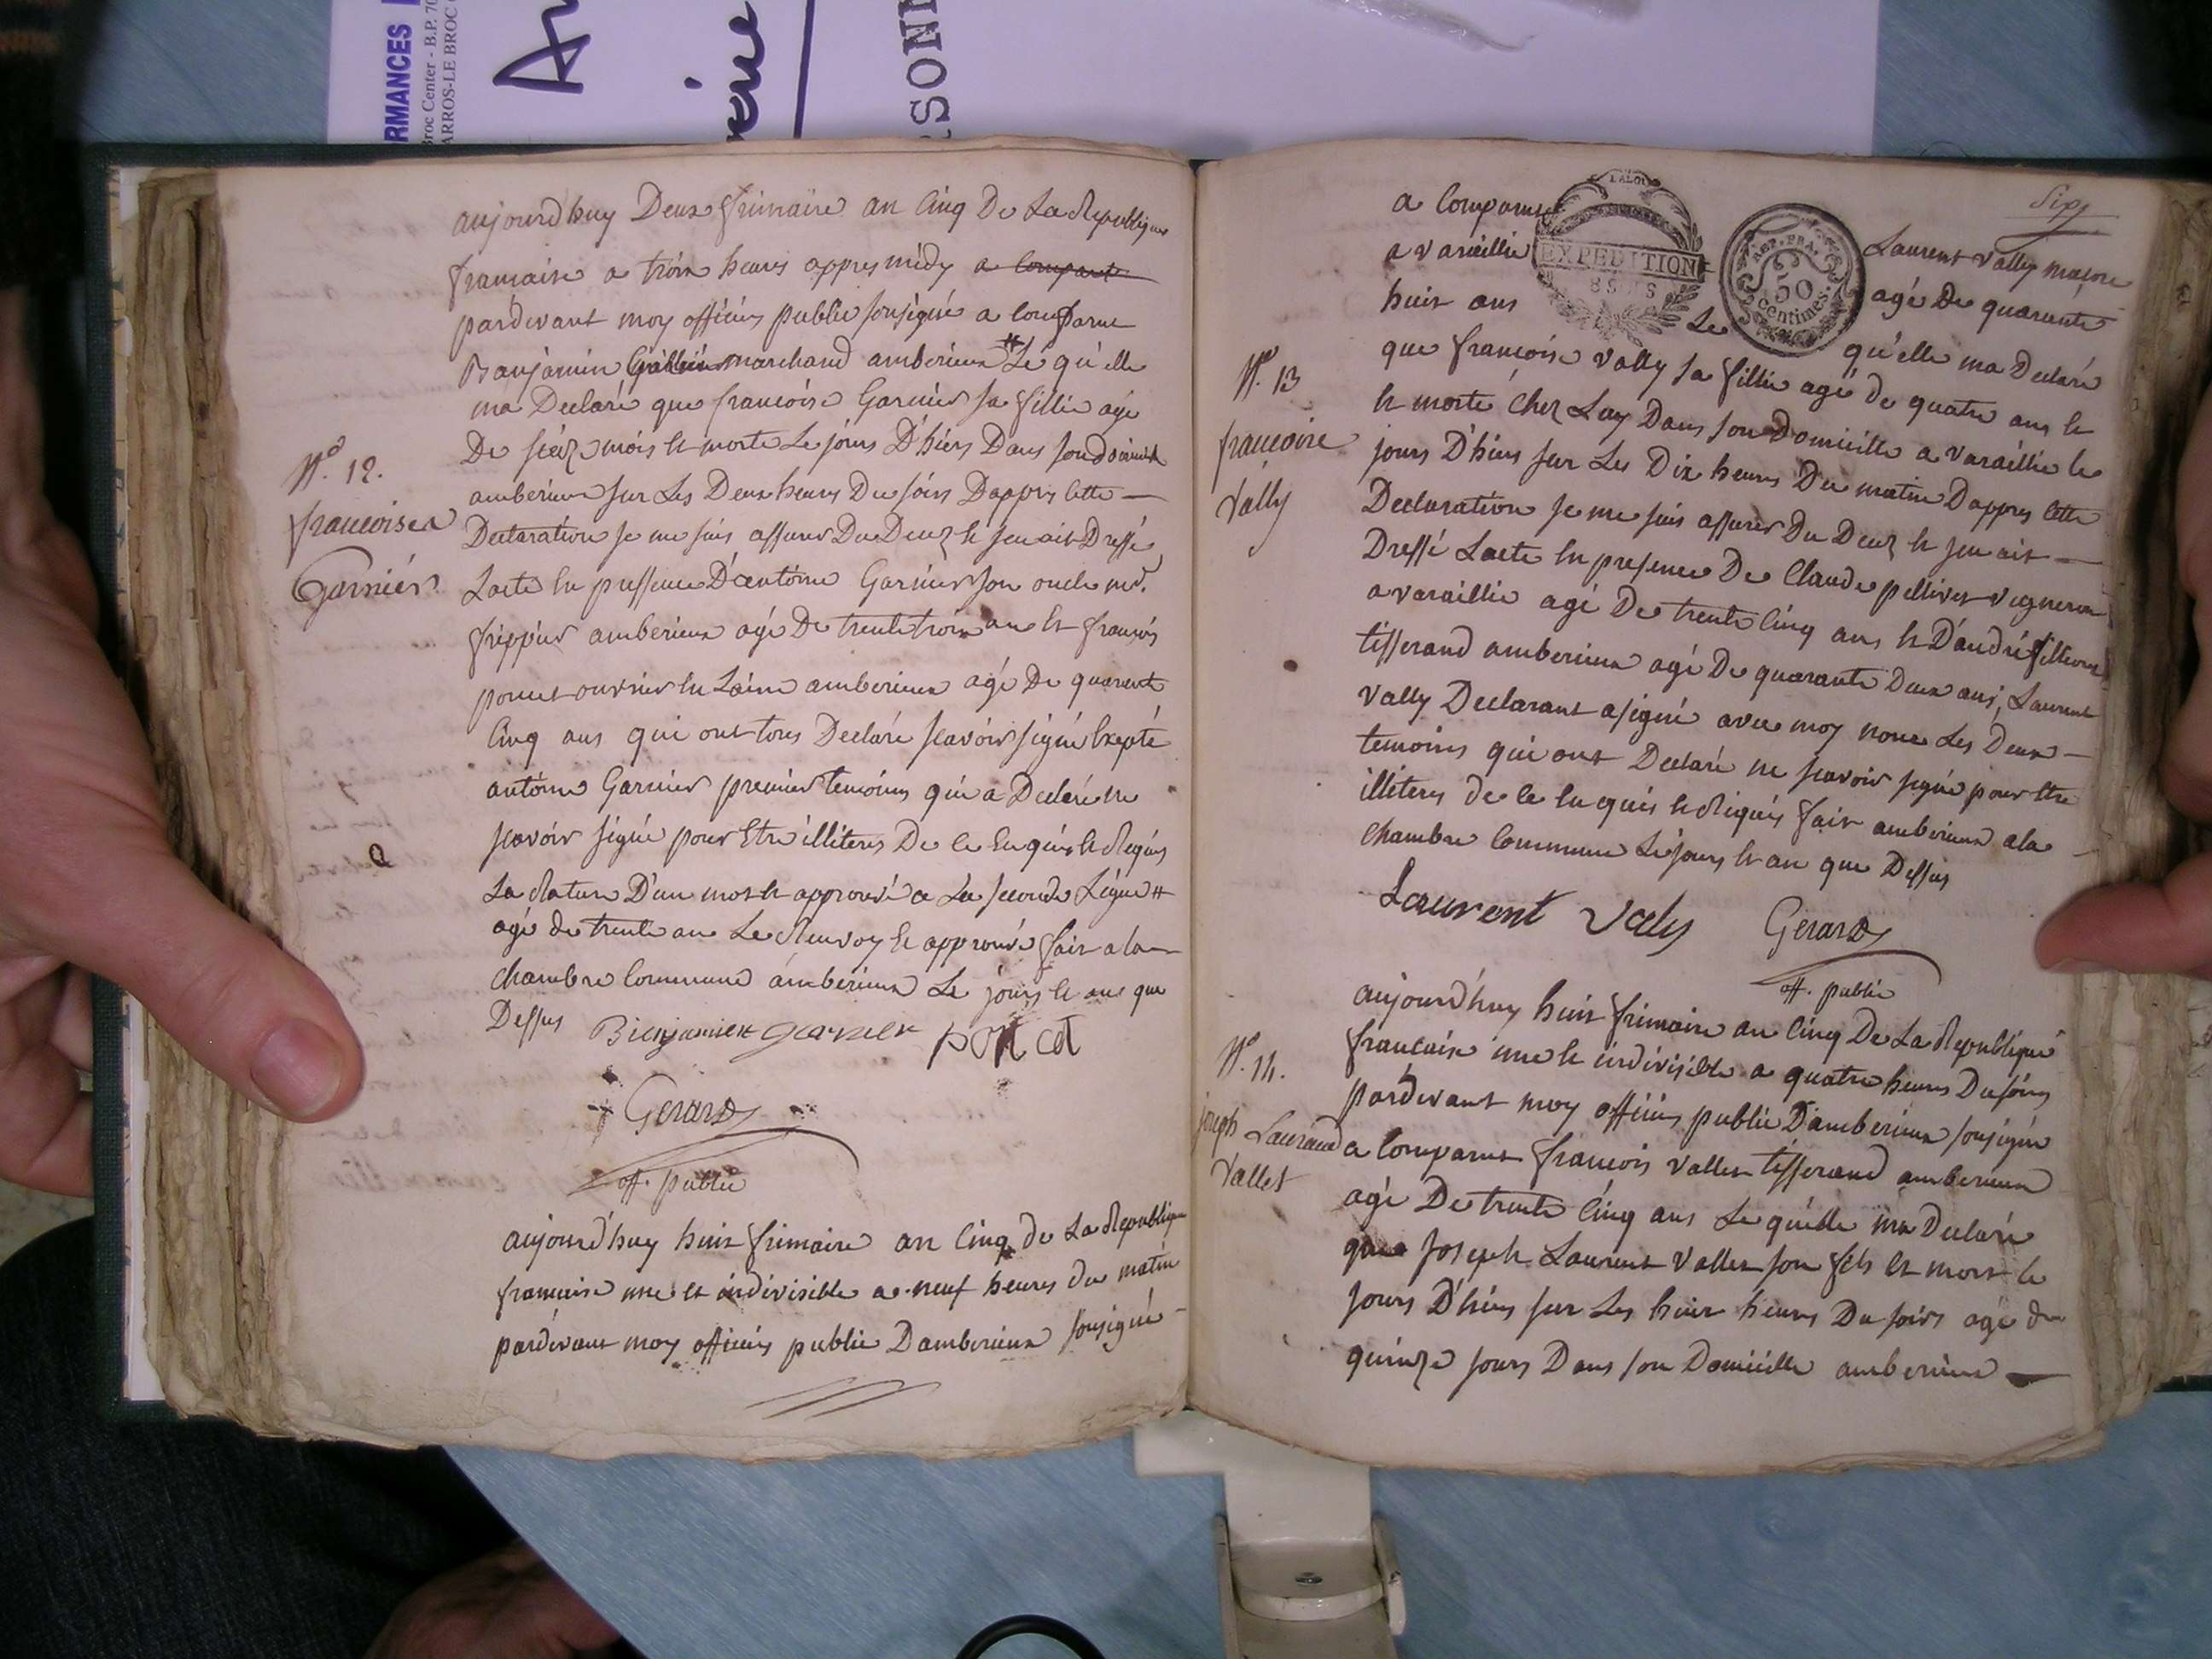 RMANCES
Broc Center - B.P. 70
ARROS-LE BROC
SONN
aujourdhuy Deux frimaire an Cinq De La Republique
francaise a trois heures appres midy a comparut
pardevant moy officiers public soussigné a comparue
Banjamin marchand amberieux # Le qu'elle
ma Declaré que francoise Garnier sa fillie agé
De seize mois et morte Le jours D'hiers Dans son domicile
amberieux sur Les Deux heures Du soirs Dappres cette —
Declaration Je me suis assurer Du Deuz et J'en ait Dressé
Lacte En pressence D'antoine Garnier son oncle md.
frippier amberieux agé De trente trois ans et francois
poncet ouvrier En Laine amberieux agé De quarante
Cinq ans qui ont tous Declaré scavoir signé Exepté
antoine Garnier premier temoins qui a Declaré ne
scavoir signé pour Etre illiteres De ce Enquis et Requis
La Rature D'un mot et approuvé a La seconde Ligne #
agé de trente ans Le Renvoy et approuvé fait a la
Chambre Commune amberieux Le jours et ans que
Dessus Bienjamien garnier poncet
Gerard
off. public
N.° 12.
francoise
Garnier
aujourd'huy huit frimaire an Cinq de La Republique
francaise une et indivisible a neuf heures du matin
pardevant moy officiers public Damberieux sousigné
Sept
a Comparut Laurent Vally maçon
a varaillie agé De quarante
huit ans Le qu'elle ma Declaré
EXPEDITION
REP. FRA.
50
Centimes.
que francoise Vally sa fillie agé de quatre ans et
et morte chez Luy Dans son Domicille a Varaillie le
jours D'hiers sur Les Dix heures Du matin Dappres cette
Declaration Je me suis assurer Du Deuz et J'en ait —
Dressé Lacte En presence De Claude pellivet vigneron
a varaillie agé De trente Cinq ans et D'andré
tisserand amberieux agé De quarante Deux ans, Laurent
Vally Declarant a signé avec moy none Les Deux —
temoins qui ont Declaré ne scavoir signé pour Etre
illiteres de ce Enquis et Requis fait amberieux a la
Chambre Commune Le jours et an que Dessus
Laurent Valy Gerard
off. public
N.° 13
francoise
Vally
aujourd'huy huit frimaire an Cinq De La Republique
francaise une et indivisible a quatre heures Du soirs
pardevant moy officiers public D'amberieux sousigné
a Comparut francois Vallet tisserand amberieux
agé De trente Cinq ans Le quelle ma Declaré
que Joseph Laurent Vallet son fils et mort le
Jours D'hiers sur Les huit heures Du soirs agé de
quinze Jours Dans son Domicille amberieux —
N.° 14.
joseph Laurand
Vallet